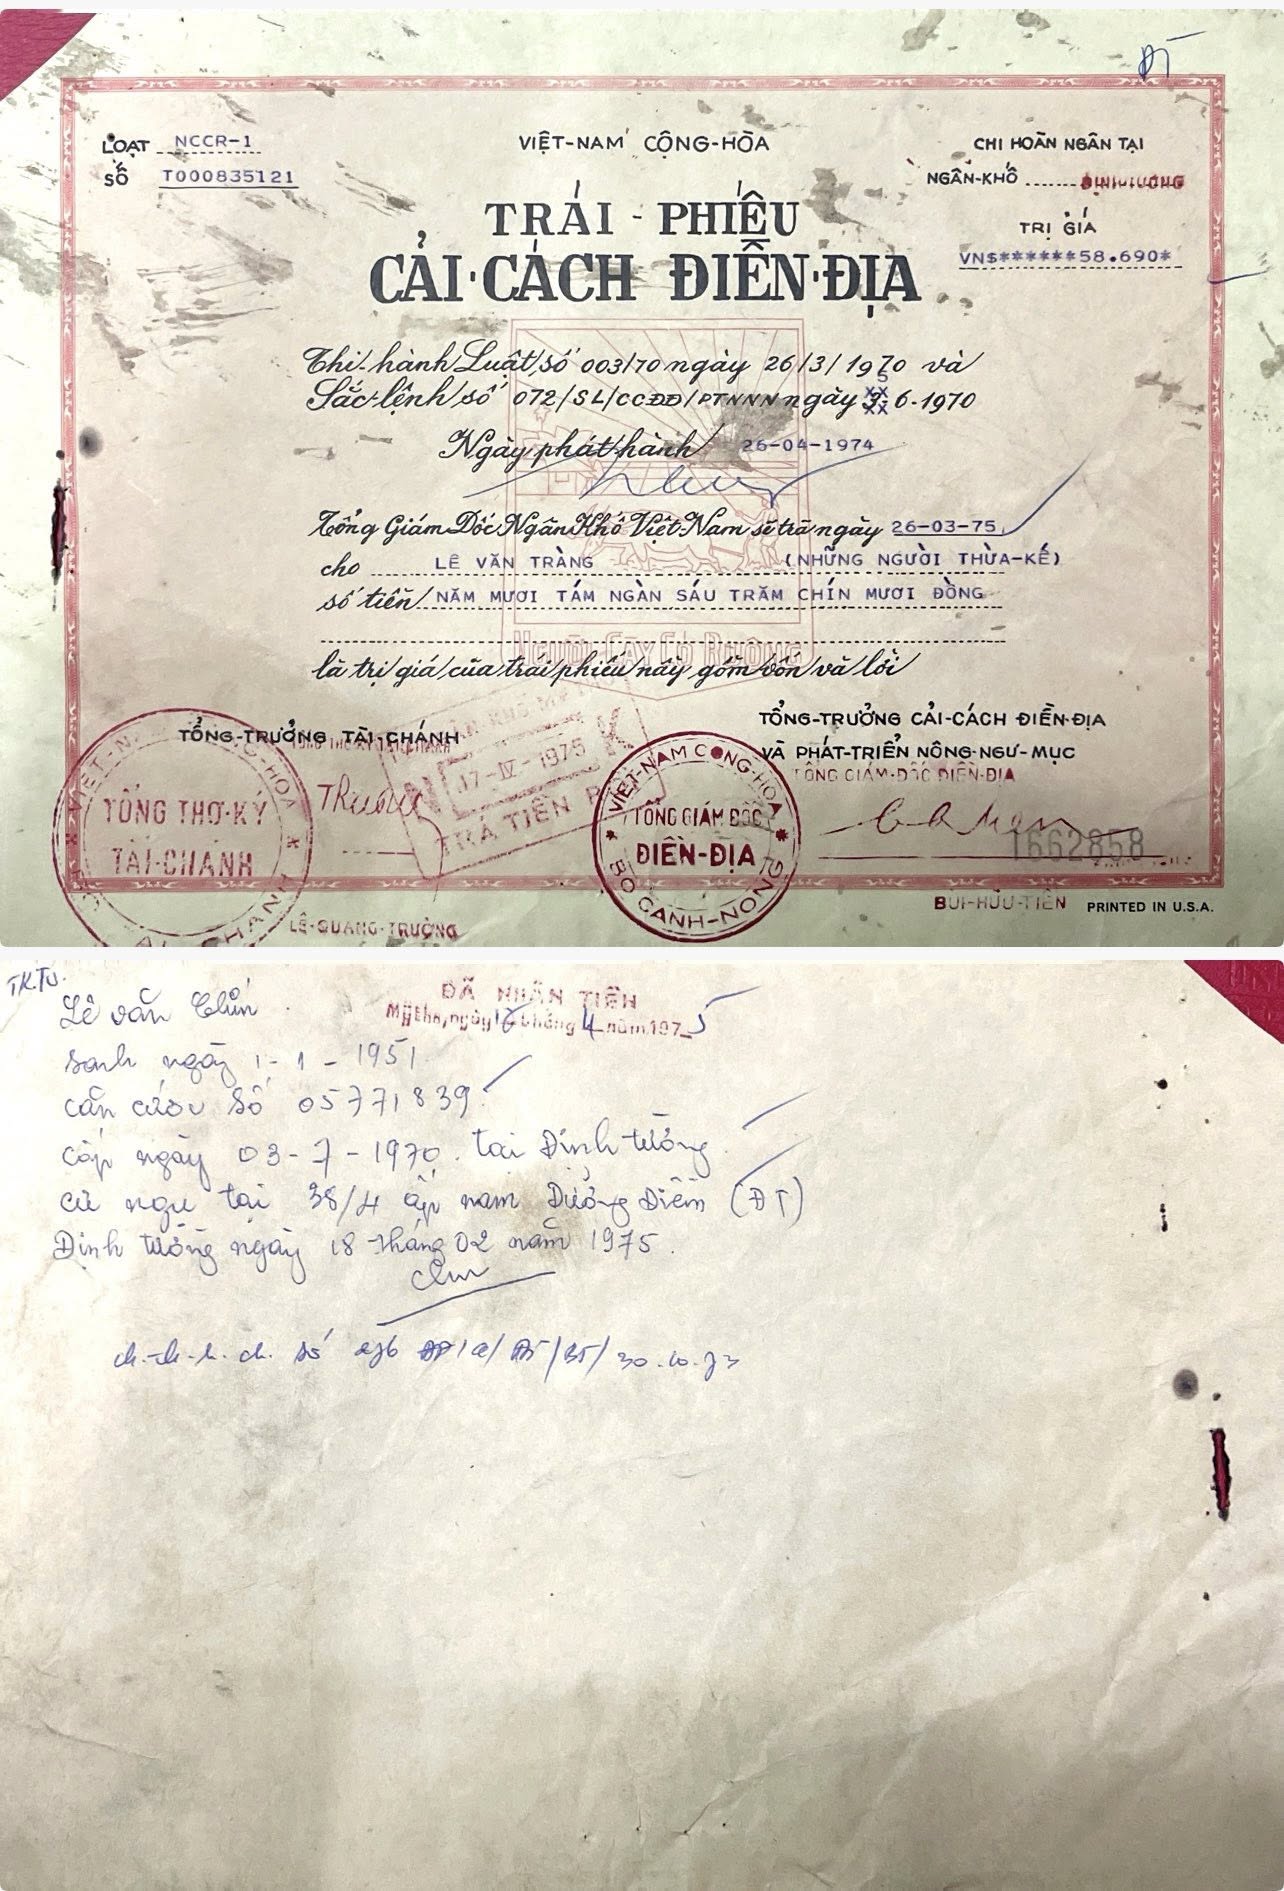 ĐT
LOẠT NCCR-1
SỐ T000835121
VIỆT-NAM CỘNG-HÒA
CHI HOÀN NGÂN TẠI
NGÂN-KHỐ ĐỊNH-TƯỜNG
TRỊ GIÁ
VN$******58.690*
TRÁI-PHIẾU
CẢI-CÁCH ĐIỀN-ĐỊA
Thi-hành Luật số 003/70 ngày 26/3/1970 và
Sắc-lệnh số 072/SL/CCĐĐ/PTNNN ngày 5.6.1970
Ngày phát hành 26-04-1974
Tổng Giám Đốc Ngân Khố Việt Nam sẽ trả ngày 26-03-75
cho LÊ VĂN TRÀNG (NHỮNG NGƯỜI THỪA-KẾ)
số tiền NĂM MƯƠI TÁM NGÀN SÁU TRĂM CHÍN MƯƠI ĐỒNG
Người Cày Có Ruộng
là trị giá của trái phiếu này gồm vốn và lời
TỔNG-TRƯỞNG TÀI-CHÁNH
TỔNG-TRƯỞNG CẢI-CÁCH ĐIỀN-ĐỊA
VÀ PHÁT-TRIỂN NÔNG-NGƯ-MỤC
TỔNG GIÁM-ĐỐC ĐIỀN-ĐỊA
17-IV-1975
TRẢ TIỀN
VIỆT-NAM CỘNG-HÒA
TỔNG THƠ-KÝ
TÀI-CHÁNH
VIỆT-NAM CỘNG-HÒA
TỔNG GIÁM ĐỐC
ĐIỀN-ĐỊA
BỘ CANH-NÔNG
1662858
LÊ-QUANG-TRƯỜNG
BÙI-HỮU-TIÊN
PRINTED IN U.S.A.
TK.TU.
ĐÃ NHẬN TIỀN
Mỹtho, ngày tháng 4 năm 1975
Lê văn
sanh ngày 1-1-1951
căn cước số 05771839
cấp ngày 03-7-1970 tại Định tường
cư ngụ tại 38/4 ấp nam Dưỡng Điềm (ĐT)
Định tường ngày 18 tháng 02 năm 1975
số 30.10.73